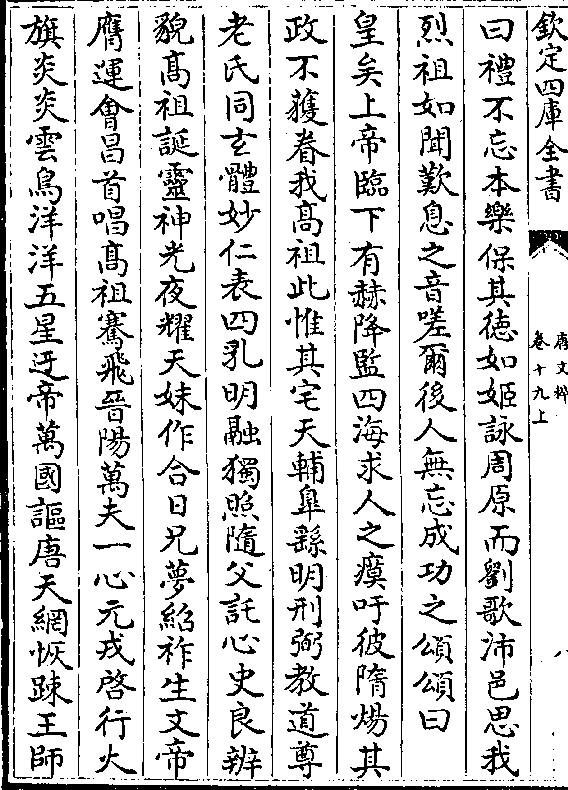 欽定四庫全書
唐文粹
卷十九上
曰禮不忘本樂保其徳如姬詠周原而劉歌沛邑思我
烈祖如聞歎息之音嗟爾後人無忘成功之頌頌曰
皇矣上帝臨下有赫降監四海求人之瘼吁彼隋煬其
政不獲眷我髙祖此惟其宅天輔臯繇明刑弼教道尊
老氏同玄體妙仁表四乳明融獨照隨父託心史良辨
貌髙祖誕靈神光夜耀天妹作合日兄夢紹祚生文帝
膺運會昌首唱髙祖騫飛晉陽萬夫一心元戎啓行火
旗炎炎雲鳥洋洋五星迓帝萬國謳唐天網恢踈王師